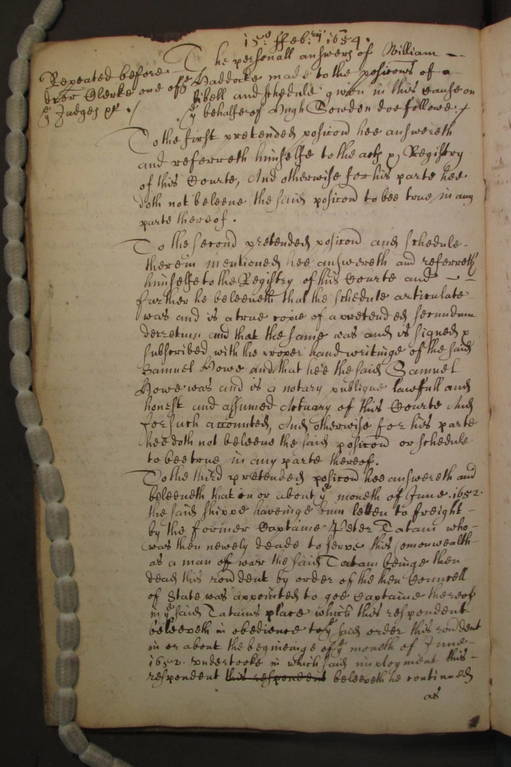 15.o ffeb:ry 1654.
The personall answers of William
Haddocke made to the posicons of a
libell and schedule given in this Cause on
ye behalfe of Hugh Sowdon doe followe./
Repeated before
Doctor Clerke one of
ye Judges
To the first pretended posicon hee answereth
and referreth himselfe to the acts & Registry
of this Courte, And otherwise for his parte hee
doth not beleeve the said posicon to bee true in any
parte thereof.
To the second pretended posicon and schedule
therein mentioned hee answereth and referreth
himselfe to the Registry of this Courte and
further he beleeveth that the schedule articulate
was and is a true copie of a pretended secundum
decretum and that the same was and is signed &
subscribed with the proper hand writinge of the said
Samuel Howe and that hee the said Samuel
Howe was and is a notary publique lawfull and
honest and assumed Actuary of this Courte And
for such accounted, And otherwise for his parte
hee doth not beleeve the said posicon or schedule
to bee true in any parte thereof.
To the third pretended posicon hee answereth and
beleeveth that on or about ye moneth of June 1652
the said shippe haveinge bin letten to freight
by the former Captaine Peter Tatam who
was then newly deade to serve this Comonwealth
as a man of warr the said Tatam beinge then
dead this rondent by order of the then Councell
of State was appointed to goe Captaine thereof
in ye said Tatams place which this respondent
beleeveth in obedience to ye said order this rondent
in or about the begininge of ye moneth of June
1652 undertooke in which said imployment this
respondent this respondent beleeveth he continued
as